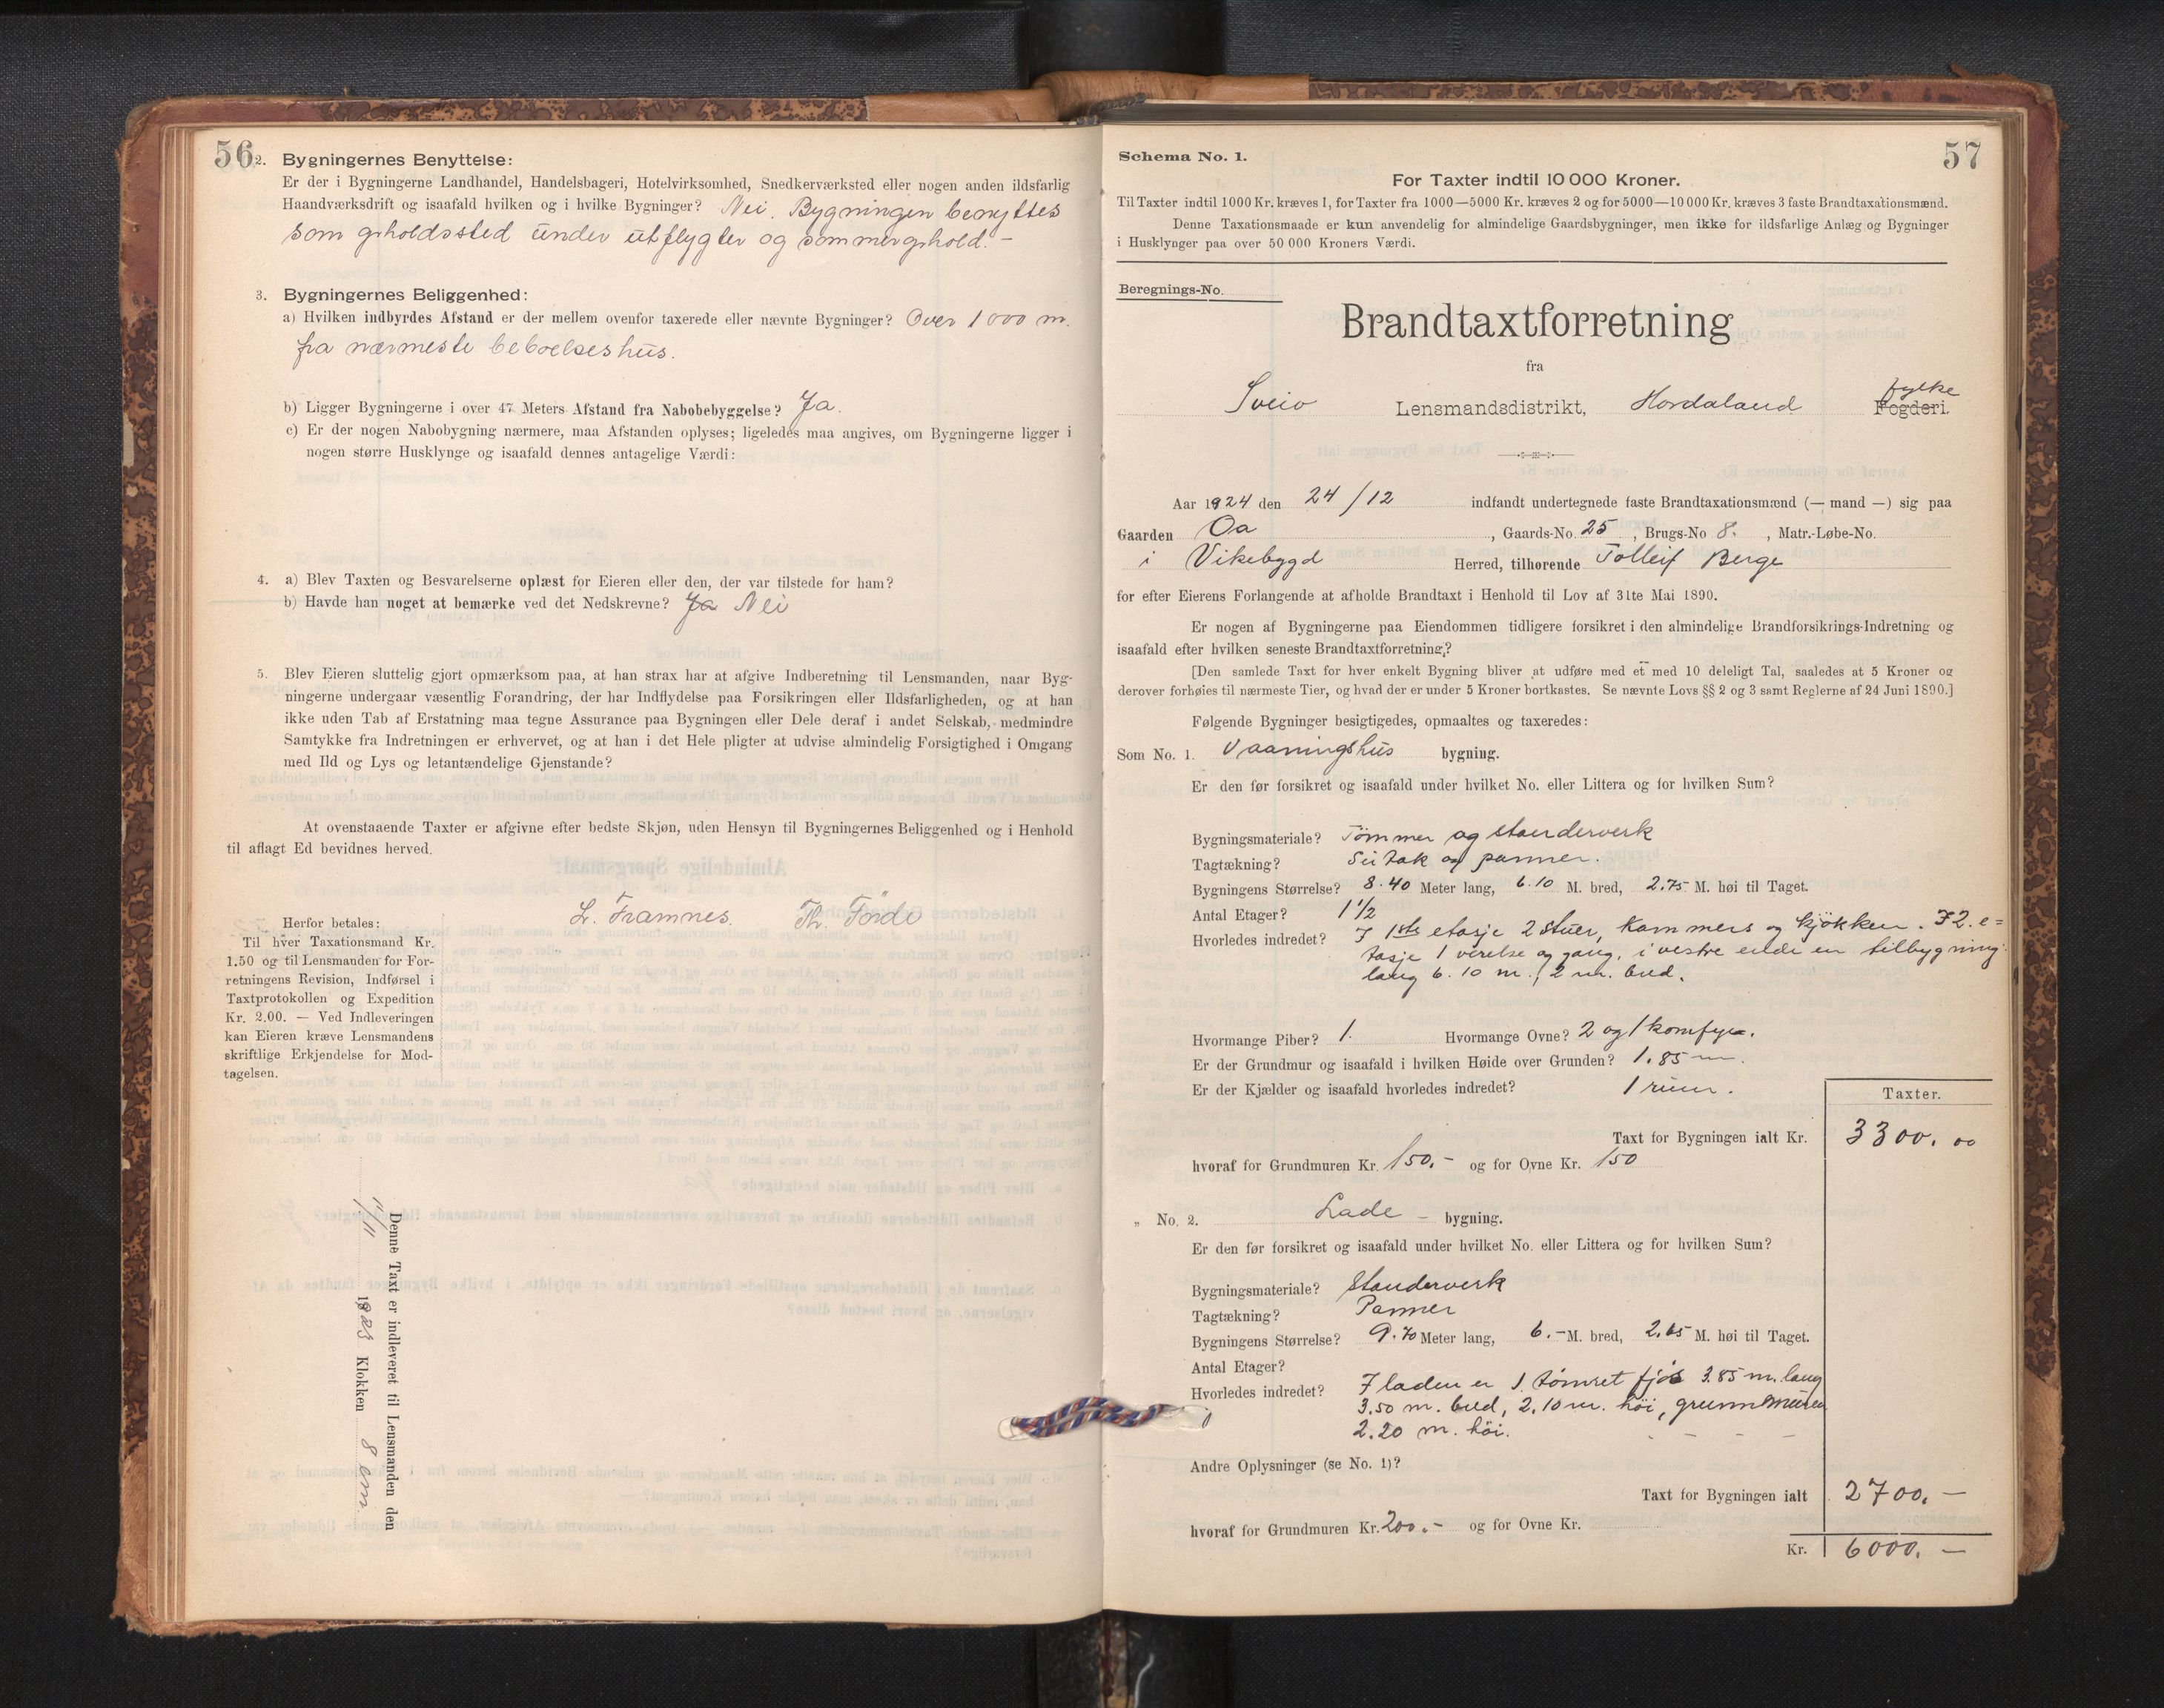 56
2. Bygningernes Benyttelse:
Er der i Bygningerne Landhandel, Handelsbageri, Hotelvirksomhed, Snedkerværksted eller nogen anden ildsfarlig
Haandværksdrift og isaafald hvilken og i hvilke Bygninger? Nei. Bygningen benyttes
som opholdssted under utflygter og sommerophold. -
3. Bygningernes Beliggenhed:
a) Hvilken indbyrdes Afstand er der mellem ovenfor taxerede eller nævnte Bygninger? Over 1000 m.
fra nærmeste beboelseshus.
b) Ligger Bygningerne i over 47 Meters Afstand fra Nabobebyggelse? Ja.
c) Er der nogen Nabobygning nærmere, maa Afstanden oplyses; ligeledes maa angives, om Bygningerne ligger i
nogen større Husklynge og isaafald dennes antagelige Værdi:
4. a) Blev Taxten og Besvarelserne oplæst for Eieren eller den, der var tilstede for ham?
b) Havde han noget at bemærke ved det Nedskrevne? Ja Nei
5. Blev Eieren sluttelig gjort opmærksom paa, at han strax har at afgive Indberetning til Lensmanden, naar Byg-
ningerne undergaar væsentlig Forandring, der har Indflydelse paa Forsikringen eller Ildsfarligheden, og at han
ikke uden Tab af Erstatning maa tegne Assurance paa Bygningen eller Dele deraf i andet Selskab, medmindre
Samtykke fra Indretningen er erhvervet, og at han i det Hele pligter at udvise almindelig Forsigtighed i Omgang
med Ild og Lys og letantændelige Gjenstande?
At ovenstaaende Taxter er afgivne efter bedste Skjøn, uden Hensyn til Bygningernes Beliggenhed og i Henhold
til aflagt Ed bevidnes herved.
L. Framnes. Th. Förde
Herfor betales:
Til hver Taxationsmand Kr.
1.50 og til Lensmanden for For-
retningens Revision, Indførsel i
Taxtprotokollen og Expedition
Kr. 2.00. — Ved Indleveringen
kan Eieren kræve Lensmandens
skriftlige Erkjendelse for Mod-
tagelsen.
Denne Taxt er indleveret til Lensmanden den
1923 Klokken 8 em.
57
Schema No. 1.
For Taxter indtil 10 000 Kroner.
Til Taxter indtil 1000 Kr. kræves 1, for Taxter fra 1000—5000 Kr. kræves 2 og for 5000—10 000 Kr. kræves 3 faste Brandtaxationsmænd.
Denne Taxationsmaade er kun anvendelig for almindelige Gaardsbygninger, men ikke for ildsfarlige Anlæg og Bygninger
i Husklynger paa over 50 000 Kroners Værdi.
Beregnings-No.
Brandtaxtforretning
fra
Sveio Lensmandsdistrikt, Hordaland Fogderi. fylke
Aar 1924 den 24/12 indfandt undertegnede faste Brandtaxationsmænd (— mand —) sig paa
Gaarden Oa, Gaards-No. 25, Brugs-No 8., Matr.-Løbe-No.
i Vikebygd Herred, tilhørende Tolleif Berge
for efter Eierens Forlangende at afholde Brandtaxt i Henhold til Lov af 31te Mai 1890.
Er nogen af Bygningerne paa Eiendommen tidligere forsikret i den almindelige Brandforsikrings-Indretning og
isaafald efter hvilken seneste Brandtaxtforretning?
[Den samlede Taxt for hver enkelt Bygning bliver at udføre med et med 10 deleligt Tal, saaledes at 5 Kroner og
derover forhøies til nærmeste Tier, og hvad der er under 5 Kroner bortkastes. Se nævnte Lovs §§ 2 og 3 samt Reglerne af 24 Juni 1890.]
Følgende Bygninger besigtigedes, opmaaltes og taxeredes:
Som No. 1. Vaaningshus bygning.
Er den før forsikret og isaafald under hvilket No. eller Littera og for hvilken Sum?
Bygningsmateriale? Tömmer og standerverk
Tagtækning? Seitak og panner.
Bygningens Størrelse? 8.40 Meter lang, 6.10 M. bred, 2.75 M. høi til Taget.
Antal Etager? 1 1/2
Hvorledes indredet? I 1ste etasje 2 stuer, kammers og kjökken. I 2. e=
tasje 1 værelse og gang, i vestre ende en tilbygning
lang 6.10 m., 2 m. bred.
Hvormange Piber? 1. Hvormange Ovne? 2 og 1 komfyr.
Er der Grundmur og isaafald i hvilken Høide over Grunden? 1.85 m.
Er der Kjælder og isaafald hvorledes indredet? 1 rum.
Taxter.
Taxt for Bygningen ialt Kr. 3300.00
hvoraf for Grundmuren Kr. 150.- og for Ovne Kr. 150
„ No. 2. Lade - bygning.
Er den før forsikret og isaafald under hvilket No. eller Littera og for hvilken Sum?
Bygningsmateriale? Standerverk
Tagtækning? Panner
Bygningens Størrelse? 9.70 Meter lang, 6.- M. bred, 2.65 M. høi til Taget.
Antal Etager?
Hvorledes indredet? I laden er 1. tömret fjös 3.85 m. lang
3.50 m. bred, 2.10 m. höi, grunnmuren
2.20 m. höi.
Andre Oplysninger (se No. 1)?
Taxt for Bygningen ialt 2700.—
hvoraf for Grundmuren Kr. 200.- og for Ovne Kr.
Kr. 6000.—